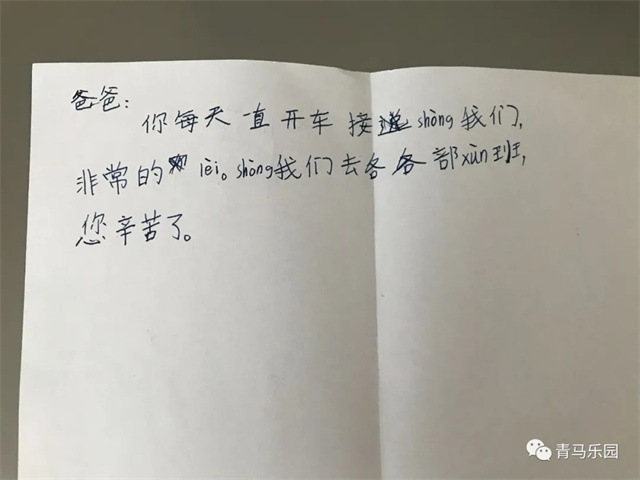 爸爸:
你每天直开车接shòng我们,
非常的lèi。shòng我们去各各部xùn班,
您辛苦了。
青马乐园